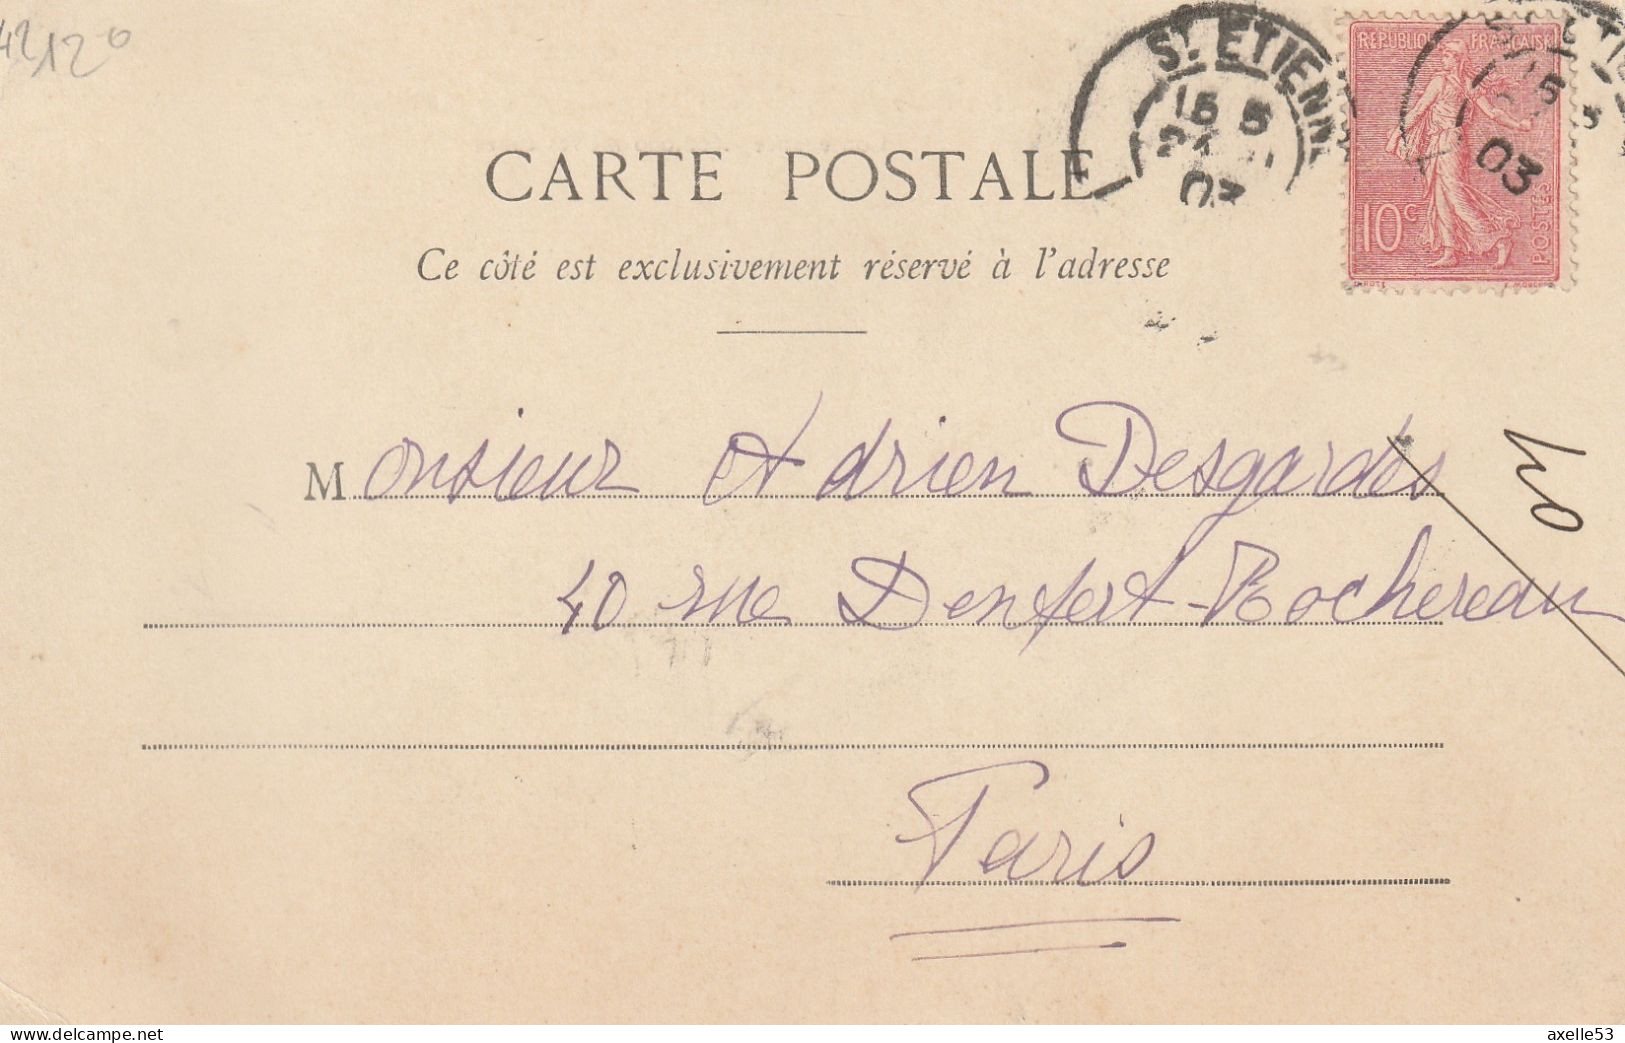 42120
St. ETIENN
15 5
03
REPUBLIQUE FRANÇAISE
10c
POSTES
03
CARTE POSTALE
Ce côté est exclusivement réservé à l'adresse
Monsieur Adrien Desgardes
40 rue Denfert-Rochereau
Paris
axelle53